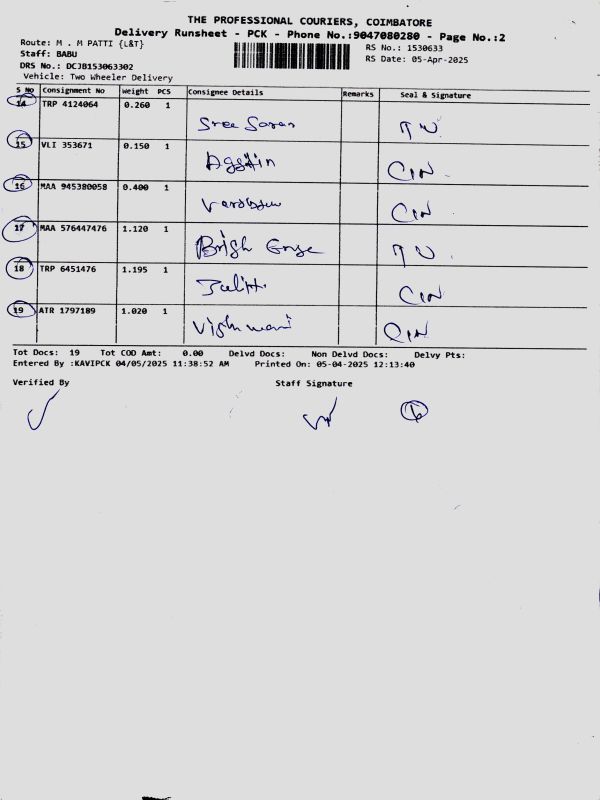 THE PROFESSIONAL COURIERS, COIMBATORE
Delivery Runsheet - PCK - Phone No.:9047080280 - Page No.:2
Route: M . M PATTI {L&T}
RS No.: 1530633
Staff: BABU
RS Date: 05-Apr-2025
DRS No.: DCJB153063302
Vehicle: Two Wheeler Delivery
S No Consignment No Weight PCS Consignee Details Remarks Seal & Signature
14 TRP 4124064 0.260 1
Sree Saran
15 VLI 353671 0.150 1
16 MAA 945380058 0.400 1
17 MAA 576447476 1.120 1
18 TRP 6451476 1.195 1
19 ATR 1797189 1.020 1
Tot Docs: 19 Tot COD Amt: 0.00 Delvd Docs: Non Delvd Docs: Delvy Pts:
Entered By :KAVIPCK 04/05/2025 11:38:52 AM Printed On: 05-04-2025 12:13:40
Verified By Staff Signature